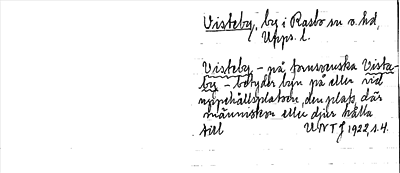 Visteby, by i Rasbo sn o. hd,
Upps. l.
Visteby - på fornsvenska Vista-
by - betyder byn på eller vid
uppehållsplatsen, den plats, där
människor eller djur hålla
till UNT 1922, s. 4.